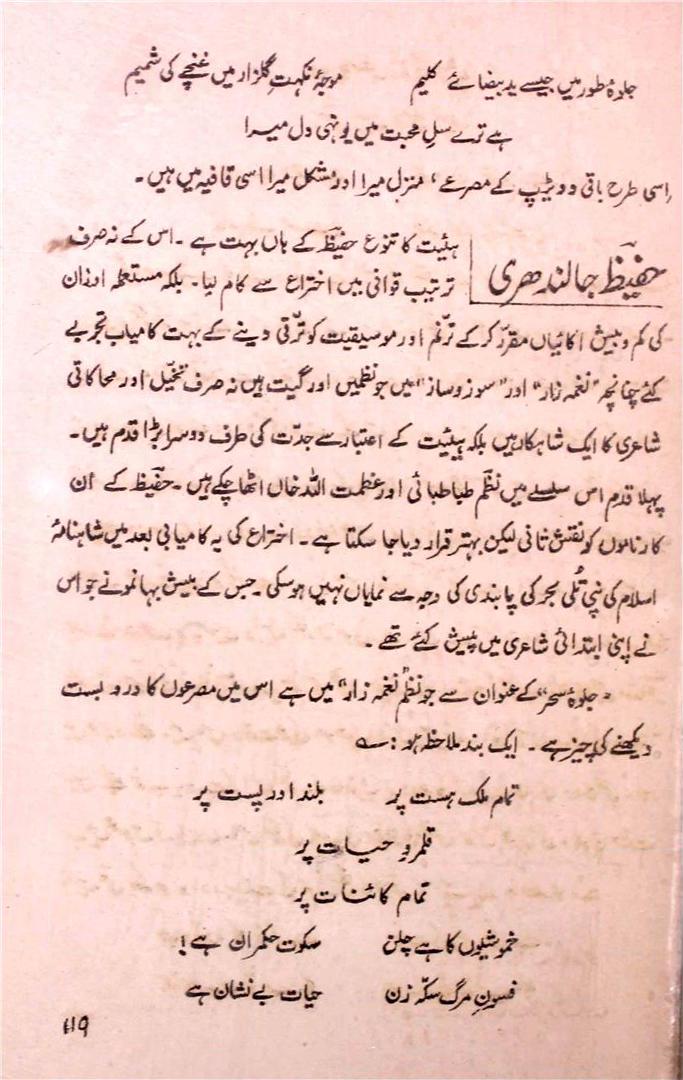 جلوۂ طور میں جیسے یدِ بیضائے کلیم موجۂ نکہتِ گلزار میں غنچے کی شمیم
ہے ترے سلِ محبت میں یونہی دل میرا
اسی طرح باقی دو ٹیپ کے مصرعے، منزل میرا اور مشکل میرا اسی قافیہ میں ہیں۔
حفیظ جالندھری
ہئیت کا تنوع حفیظ کے ہاں بہت ہے۔ اس کے نہ صرف
ترتیب قوانی میں اختراع سے کام لیا۔ بلکہ مستعملہ اوزان
کی کم و بیش اکائیاں مقرّر کر کے ترنّم اور موسیقیت کو ترّقی دینے کے بہت کامیاب تجربے
کئے چنانچہ "نغمہ زار" اور "سوز و ساز" میں جو نظمیں اور گیت ہیں نہ صرف تخیّل اور محاکاتی
شاعری کا ایک شاہکار ہیں بلکہ ہیئیت کے اعتبار سے جدّت کی طرف دوسرا بڑا قدم ہیں۔
پہلا قدم اس سلسلے میں نظم طباطبائی اور عظمت اللہ خاں اٹھا چکے ہیں۔ حفیظ کے ان
کارناموں کو نقشِ ثانی لیکن بہتر قرار دیا جا سکتا ہے۔ اختراع کی یہ کامیابی بعد میں شاہنامۂ
اسلام کی نپی تُلی بحر کی پابندی کی وجہ سے نمایاں نہیں ہو سکی۔ جس کے بیش بہا نمونے جو اس
نے اپنی ابتدائی شاعری میں پیش کئے تھے۔
"جلوۂ سحر" کے عنوان سے جو نظم نغمہ زار" میں ہے اس میں مصرعوں کا در و بست
دیکھنے کی چیز ہے۔ ایک بند ملاحظہ ہو:۔
تمام ملک ہست پر بلند اور پست پر
قلمروِ حیات پر
تمام کائنات پر
خموشیوں کا ہے چلن سکوت حکمران ہے!
فسونِ مرگ سکّہ زن حیات بے نشان ہے
119